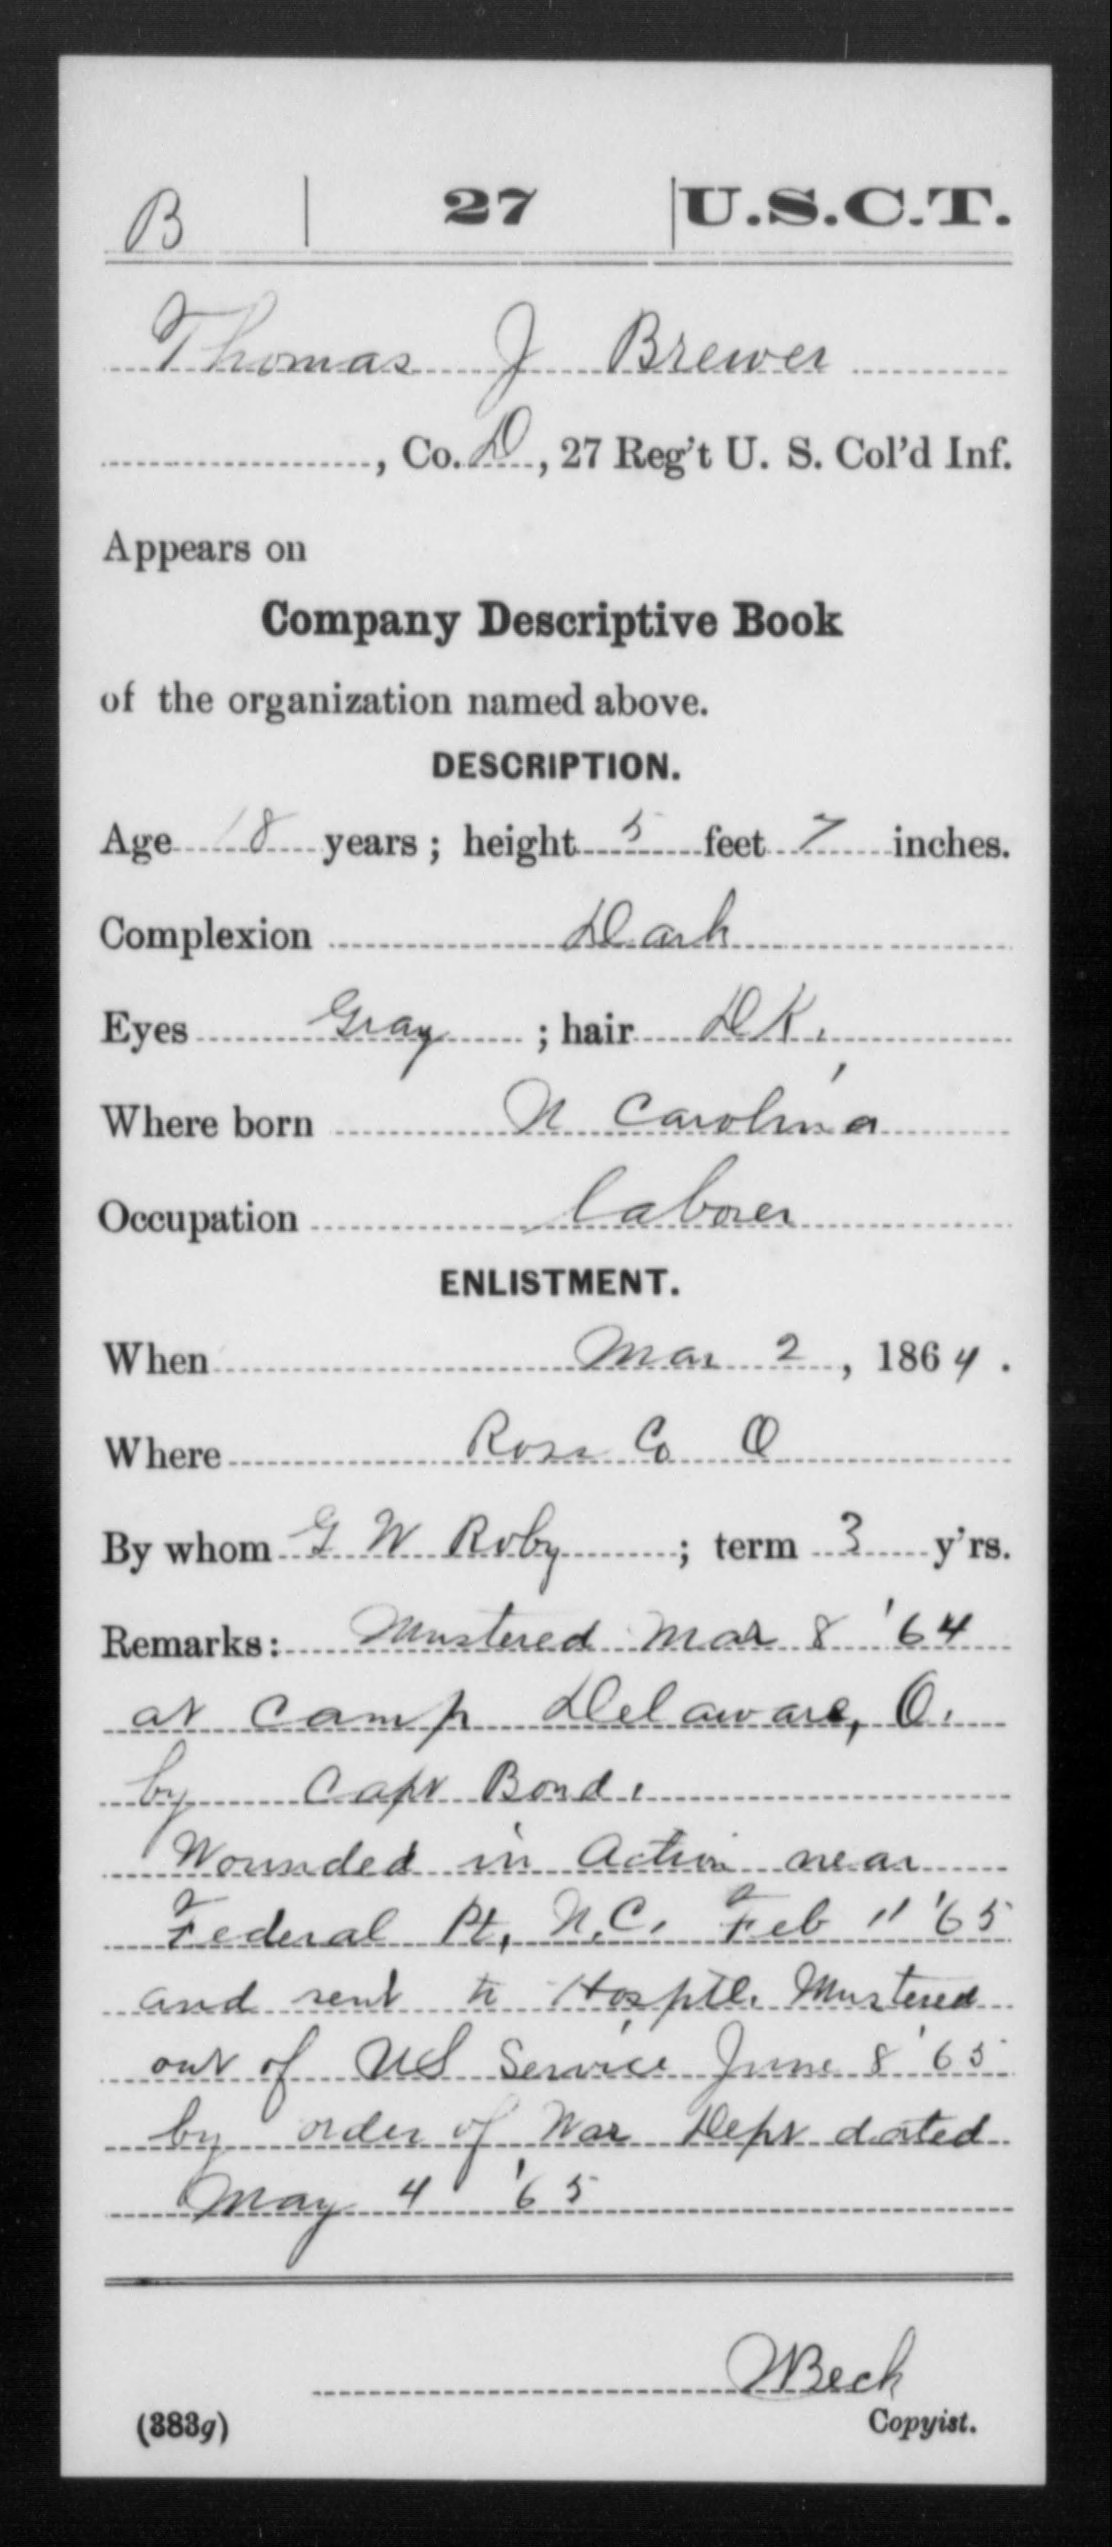 B | 27 | U.S.C.T.
Thomas J Brewer
, Co. D, 27 Reg't U. S. Col'd Inf.
Appears on
Company Descriptive Book
of the organization named above.
DESCRIPTION.
Age 18 years; height 5 feet 7 inches.
Complexion Dark
Eyes Gray; hair DK.
Where born N Carolina
Occupation laborer
ENLISTMENT.
When Mar 2, 1864.
Where Ross Co O
By whom G W Roby; term 3 y'rs.
Remarks: Mustered Mar 8 '64
at Camp Delaware, O.
by Capt Bond.
Wounded in Action near
Federal Pt, N.C. Feb 11 '65
and sent to Hosptl. Mustered
out of US Service June 8 '65
by order of War Dept dated
May 4 '65
Beck
(383g) Copyist.